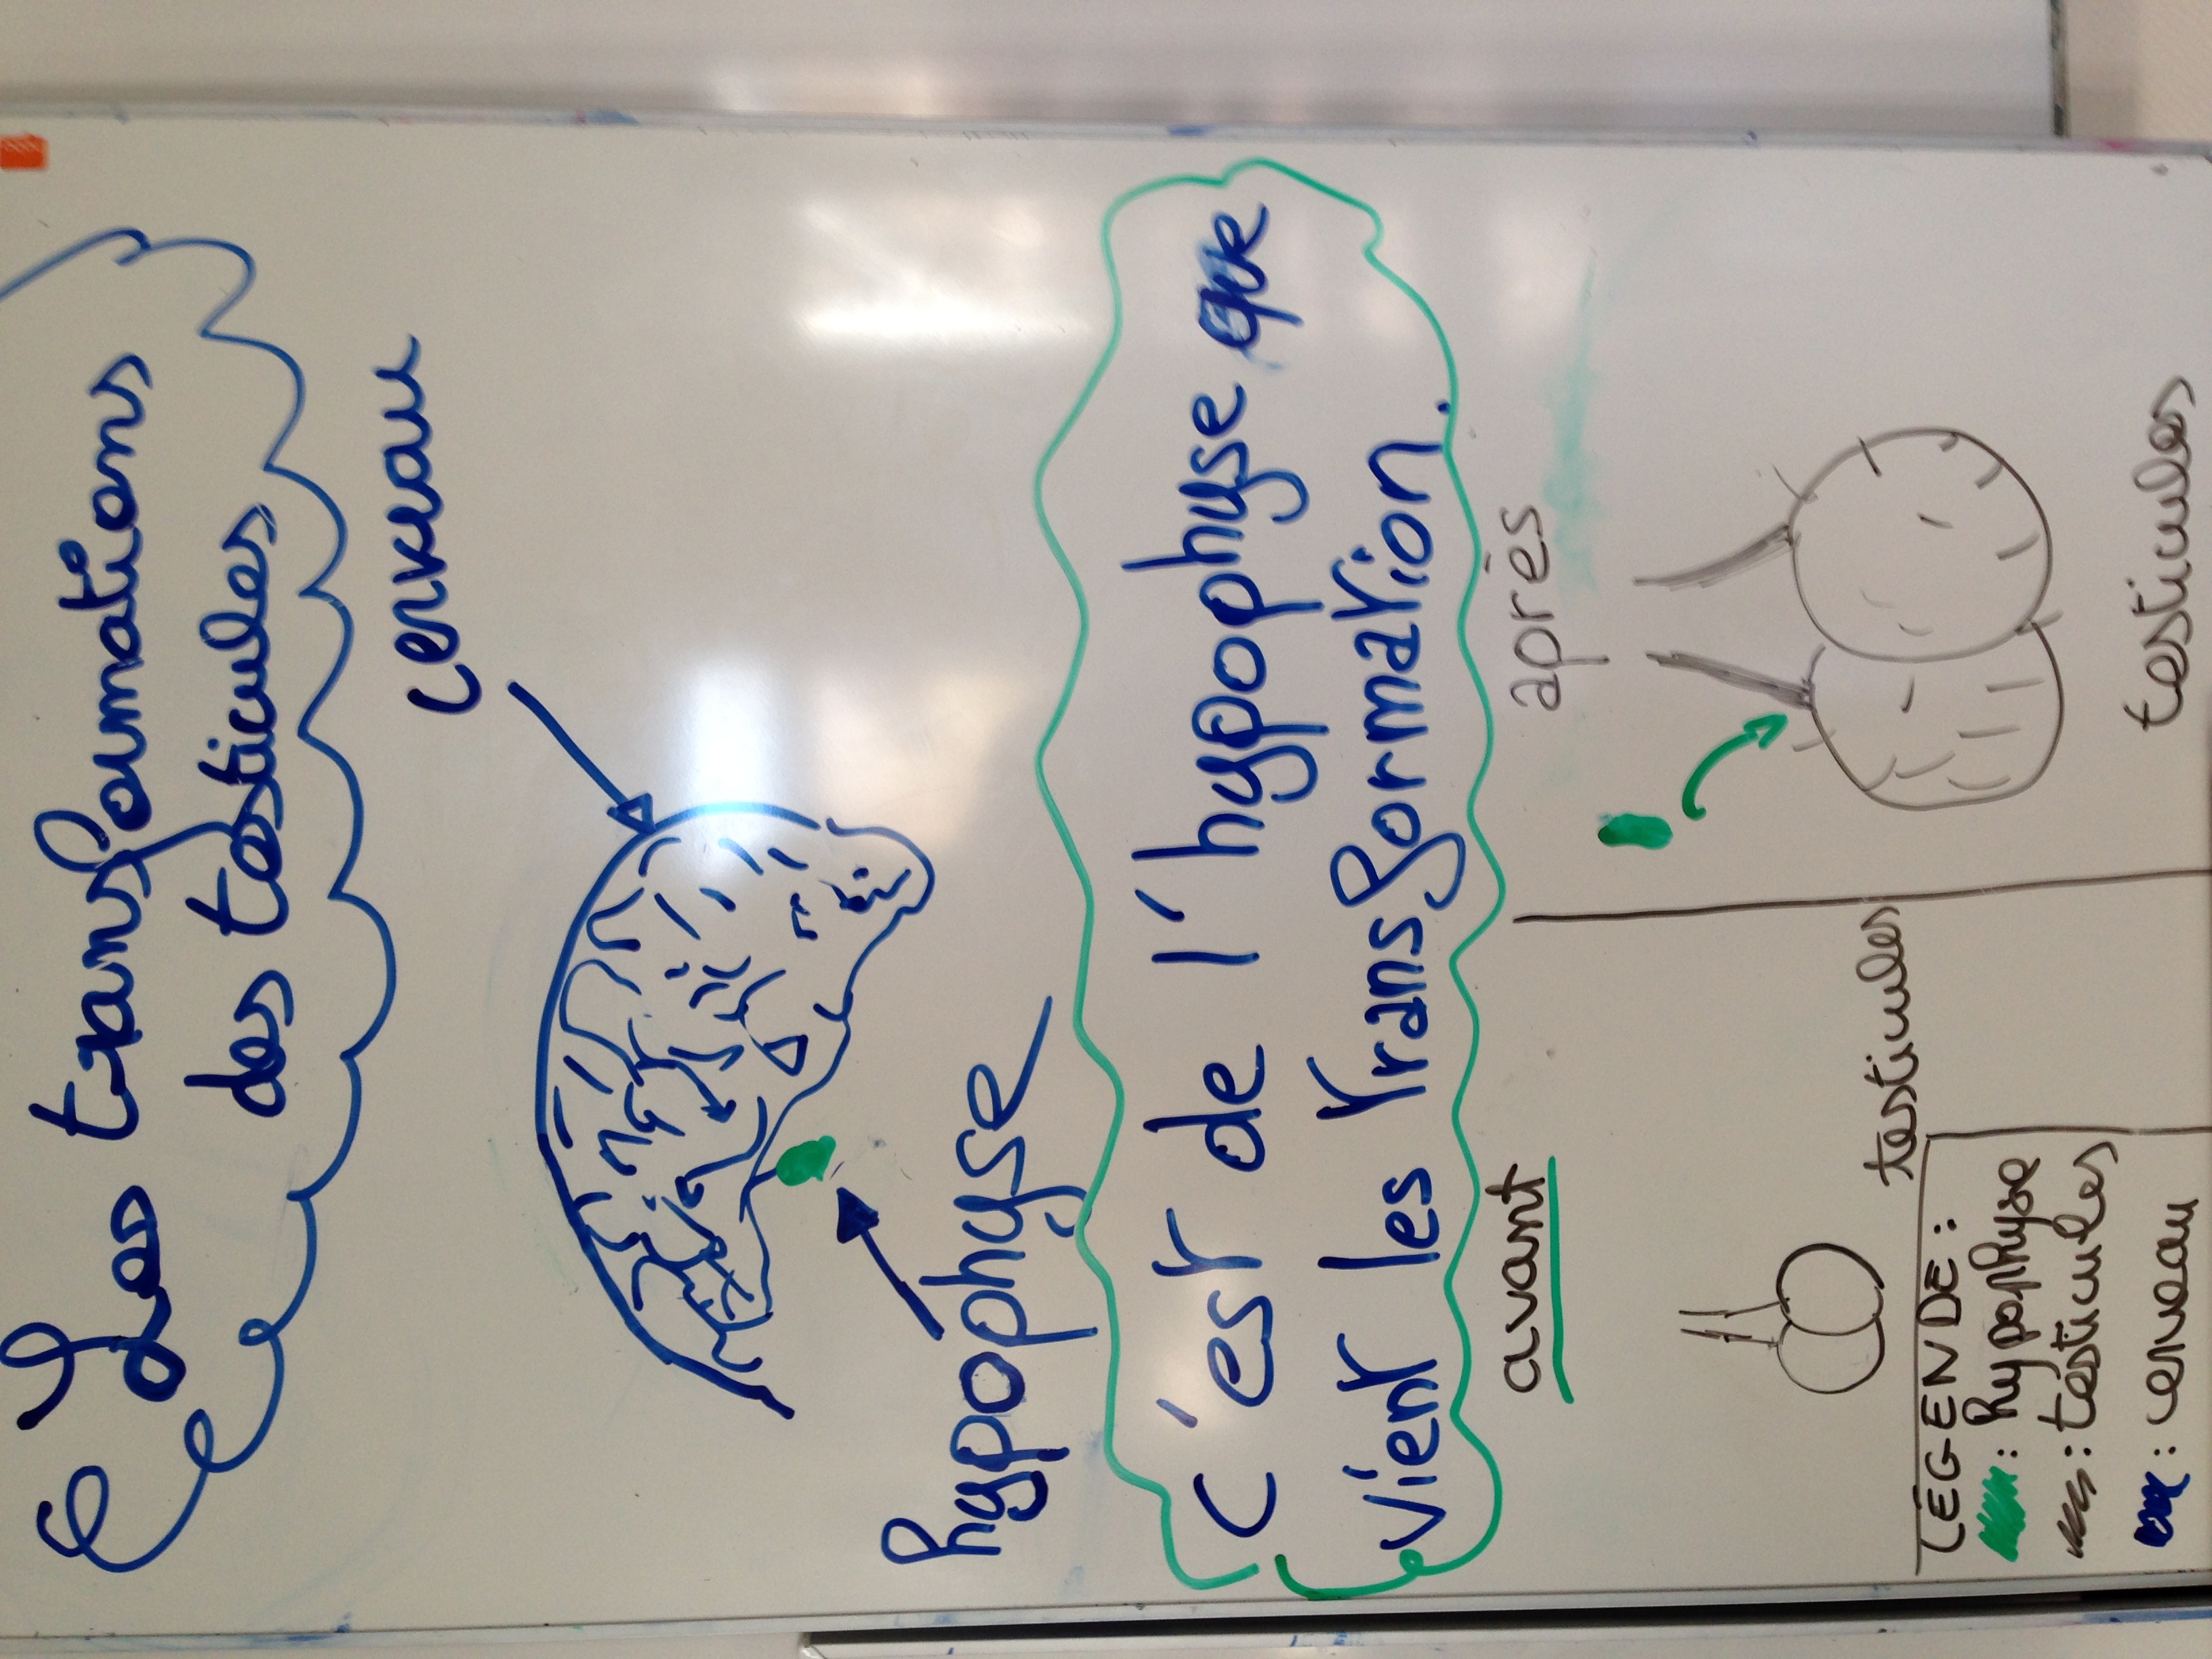 Les transformations
des testicules
cerveau
hypophyse
C'est de l'hypophyse que
vient les transformation.
avant
après
testicules
testicules
LÉGENDE :
: hypophyse
: testicules
: cerveau